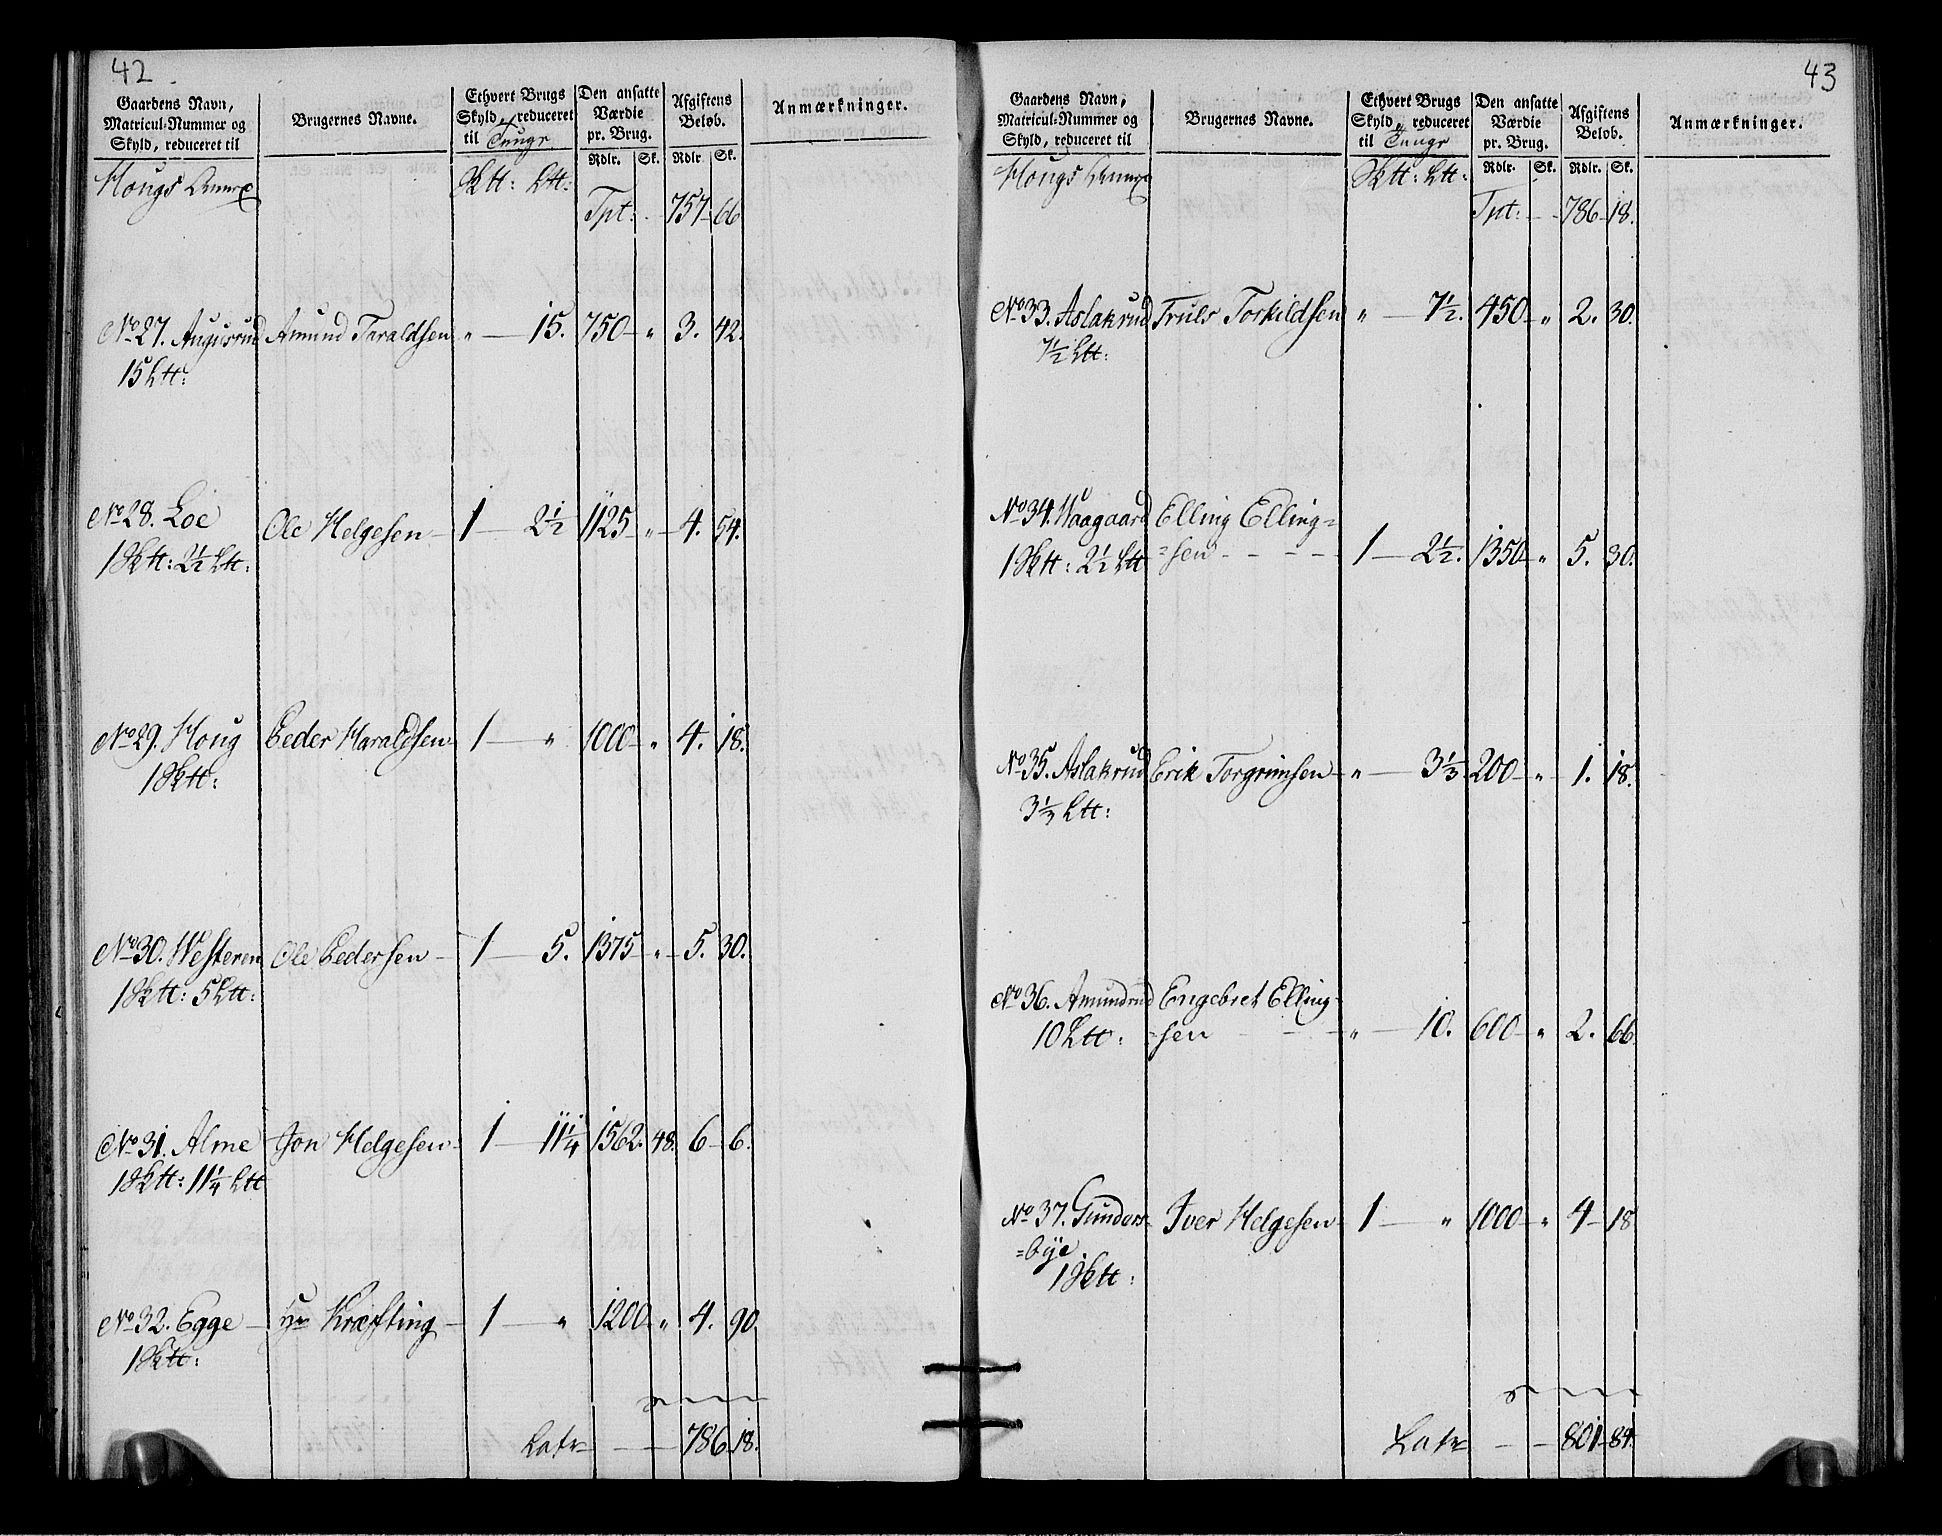 42
Gaardens Navn, Matricul-Nummer og Skyld, reduceret til
Brugernes Navne.
Ethvert Brugs Skyld, reduceret til Tunge
Den ansatte Værdie pr. Brug.
Afgiftens Beløb.
Anmærkninger.
Rdlr. Sk. Rdlr. Sk.
Hougs Annex Sktt: Ltt:
Tpt: 757 66
No 27. Augusrud Amund Taraldsen " 15. 750 " 3. 42.
15 Ltt:
No 28. Loe Ole Helgesen 1 2½ 1125 " 4. 54.
1 Sktt: 2½ Ltt:
No 29. Houg Peder Haraldsen 1 " 1000 " 4. 18.
1 Sktt:
No 30. Westeren Ole Pedersen 1 5. 1375 " 5. 30.
1 Sktt: 5 Ltt:
No 31. Alme Jon Helgesen 1 11¼ 1562. 48. 6 6.
1 Sktt: 11¼ Ltt
No 32. Egge Hr Kræfting 1 " 1200 " 4. 90
1 Sktt:
Latr 786 18.
43
Gaardens Navn, Matricul-Nummer og Skyld, reduceret til
Brugernes Navne.
Ethvert Brugs Skyld, reduceret til Tunge
Den ansatte Værdie pr. Brug.
Afgiftens Beløb.
Anmærkninger.
Rdlr. Sk. Rdlr. Sk.
Hougs Annex Sktt: Ltt:
Tpt: 786 18.
No 33. Aslakrud Truls Torkildsen " 7½. 450 " 2. 30.
7½ Ltt:
No 34. Waagaard Elling Elling=
1 Sktt: 2½ Ltt =sen 1 2½. 1350 " 5. 30.
No 35. Aslakrud Erik Torgrimsen " 3⅓ 200 " 1. 18.
3⅓ Ltt:
No 36. Amundrud Engebret Elling-
10 Ltt: -sen " 10. 600 " 2. 66
No 37. Gunders- Iver Helgesen 1 " 1000 " 4 18
=bye
1 Sktt:
Latr 801 84.